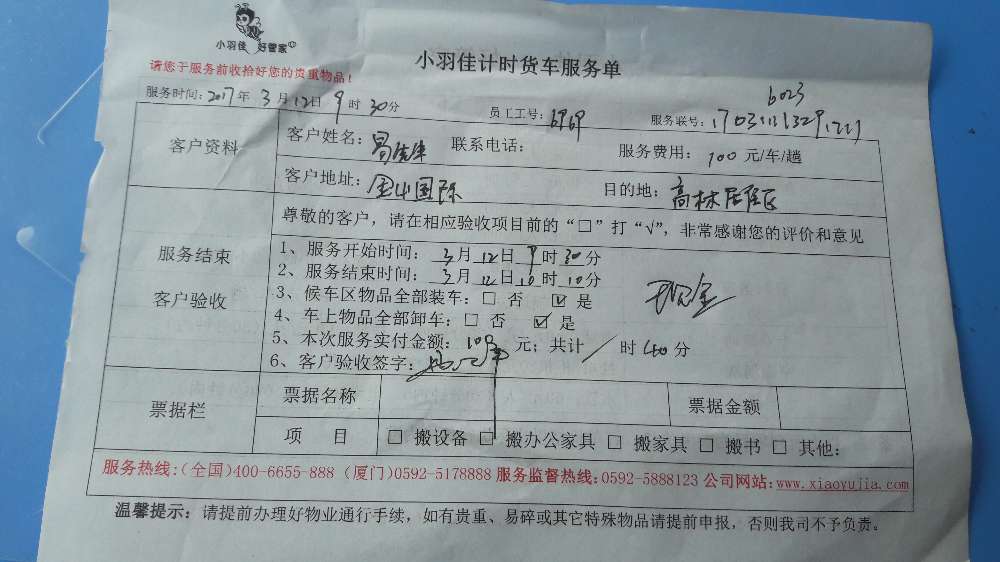 小羽佳 好管家
小羽佳计时货车服务单
请您于服务前收拾好您的贵重物品!
6023
服务时间:2017年3月12日9时30分 员工工号:6969 服务联号:
客户资料
客户姓名: 联系电话: 服务费用:100元/车/趟
客户地址:金山国际 目的地:高林居住区
服务结束
客户验收
尊敬的客户,请在相应验收项目前的“□”打“√”,非常感谢您的评价和意见
1、服务开始时间:3月12日9时30分
2、服务结束时间:3月12日10时10分
现金
3、候车区物品全部装车:□ 否 ☑ 是
4、车上物品全部卸车:□ 否 ☑ 是
5、本次服务实付金额:100元;共计/时40分
6、客户验收签字:
票据栏
票据名称 票据金额
项 目 □ 搬设备 □ 搬办公家具 □ 搬家具 □ 搬书 □ 其他:
服务热线:(全国)400-6655-888 (厦门)0592-5178888 服务监督热线:0592-5888123 公司网站:www.xiaoyujia.com
温馨提示:请提前办理好物业通行手续,如有贵重、易碎或其它特殊物品请提前申报,否则我司不予负责。